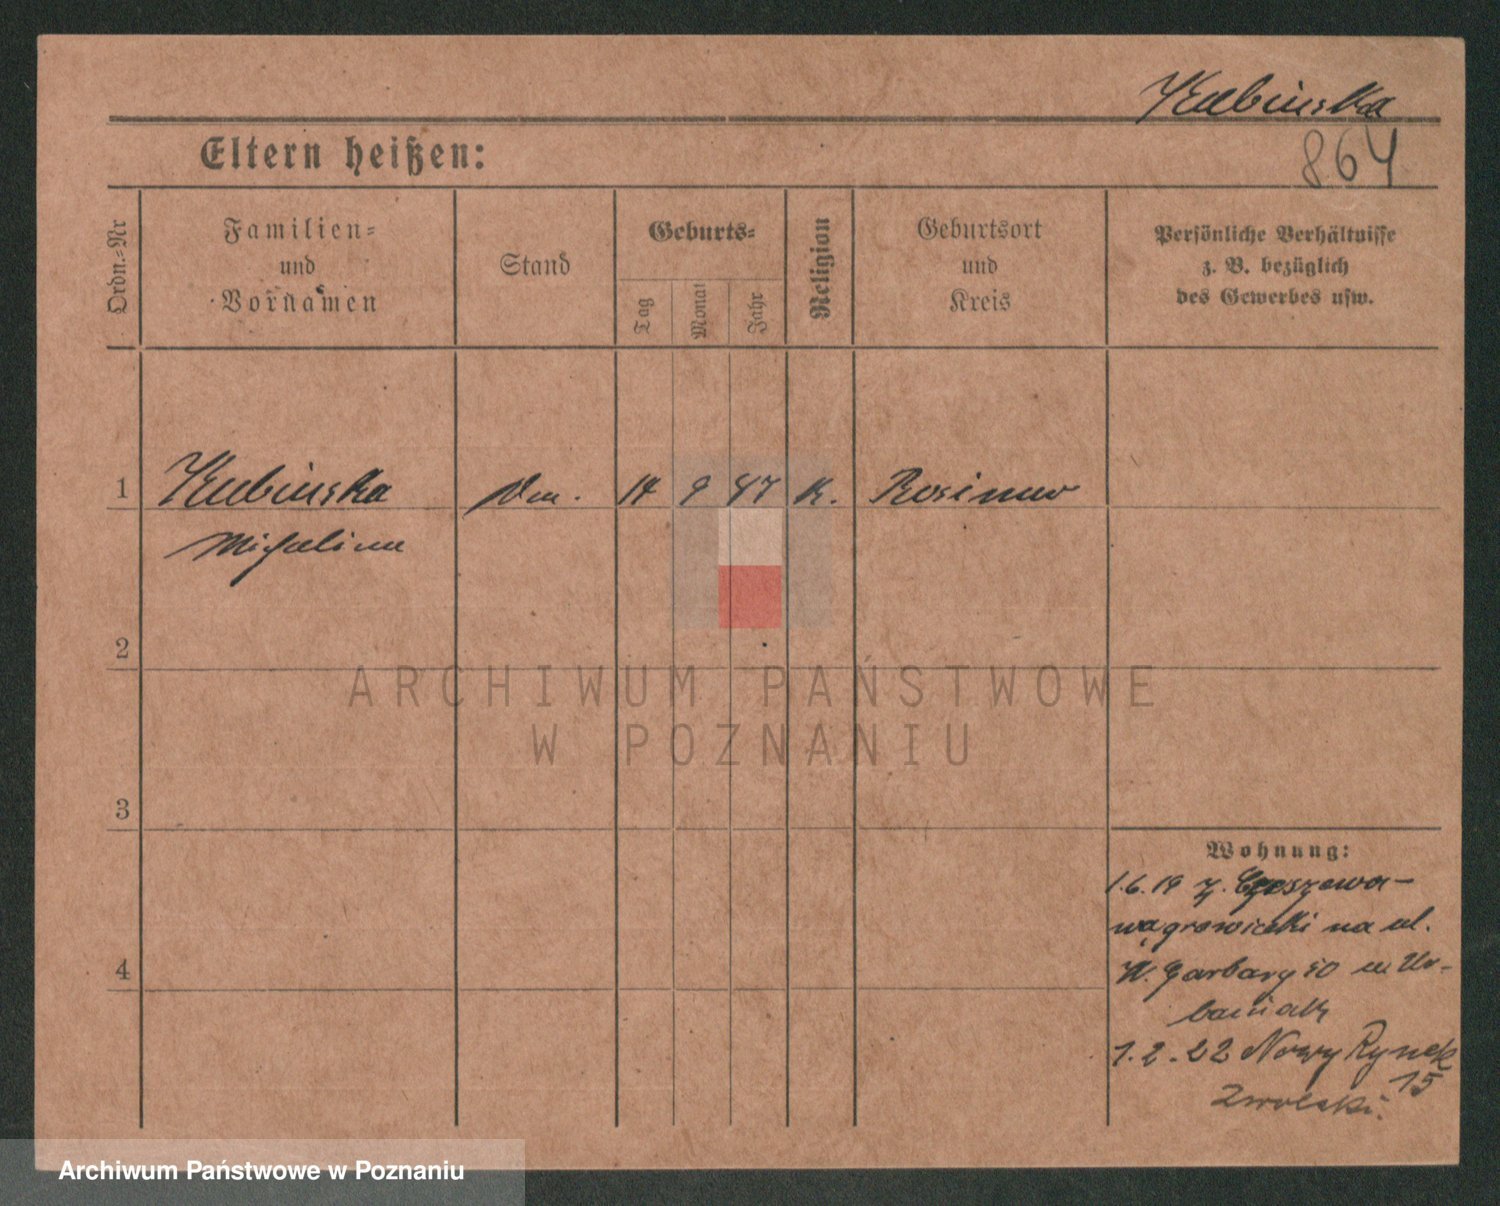 Kubinska
864
Eltern heißen:
Ordn.=Nr
Familien=
und
Vornamen
Stand
Geburts=
Tag
Monat
Jahr
Religion
Geburtsort
und
Kreis
Persönliche Verhältnisse
z. B. bezüglich
des Gewerbes usw.
1
Kubinska
14 9 47 K.
Michalina
2
3
4
Wohnung:
1.6.19 z.
wągrowiecki na ul.
W. Garbary 50 m Ur-
baniak
1.2.22 Nowy Rynek
15
Zwolski.
ARCHIWUM PAŃSTWOWE
W POZNANIU
Archiwum Państwowe w Poznaniu